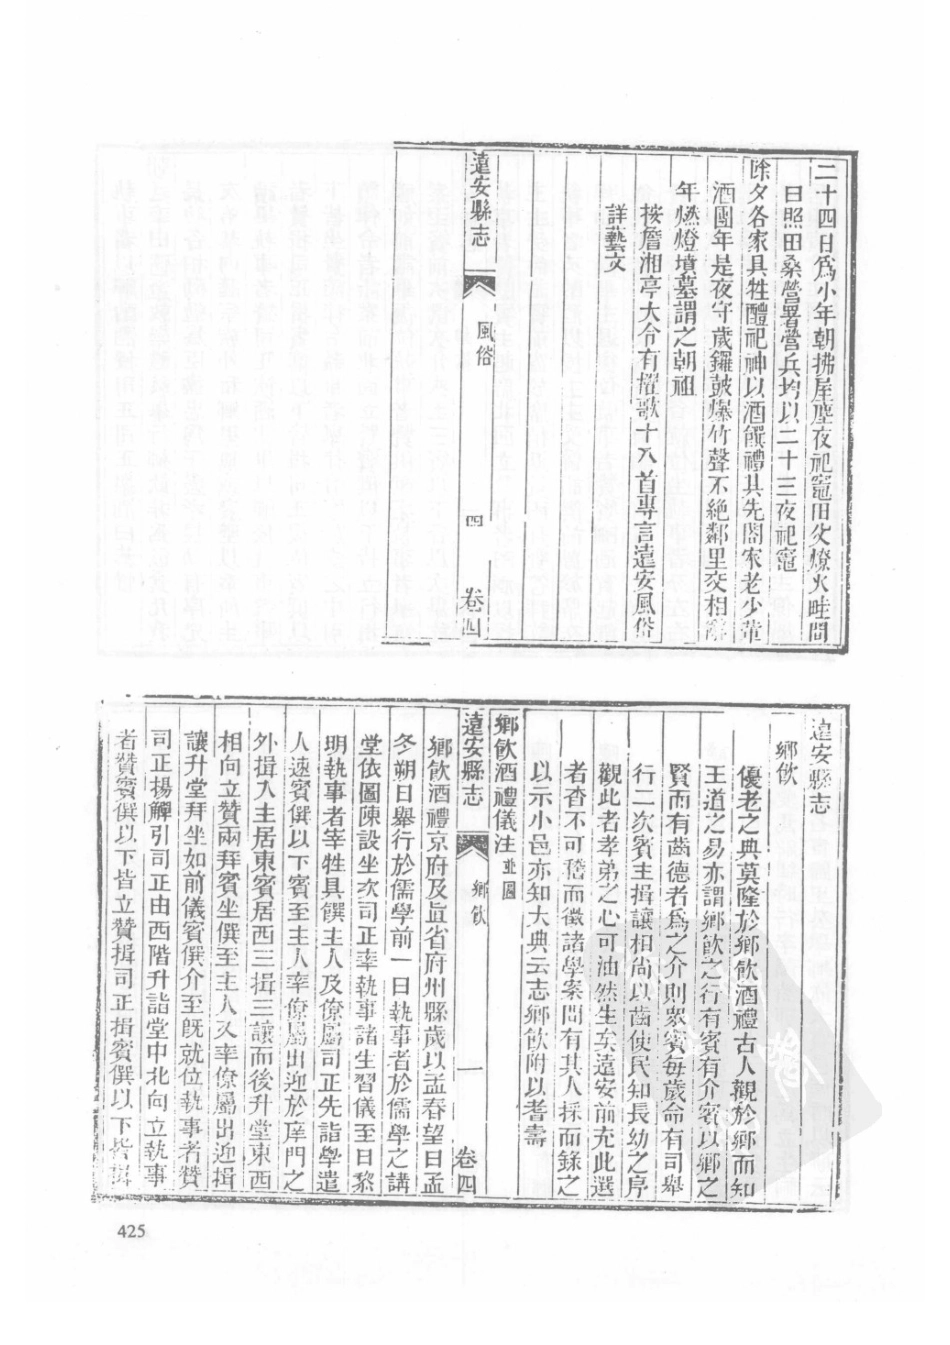 二十四日爲小年朝拂屋塵夜祀竈田父燎火畦間
曰照田桑營署營兵均以二十三夜祀竈
除夕各家具牲醴祀神以酒饌禮其先閤家老少葷
酒團年是夜守歲鑼鼓爆竹聲不絕鄰里交相
年燃燈墳墓謂之朝祖
按詹湘亭大令有擢歌十八首專言遠安風俗
詳藝文
遠安縣志
風俗
四
卷四
遠安縣志
鄉飲
優老之典莫隆於鄉飲酒禮古人觀於鄉而知
王道之易亦謂鄉飲之行有賓有介賓以鄉之
賢而有齒德者爲之介則衆賓每歲命有司舉
行二次賓主揖讓相尚以齒使民知長幼之序
觀此者孝弟之心可油然生矣遠安前充此選
者杳不可稽而徵諸學案間有其人採而錄之
以示小邑亦知大典云志鄉飲附以耆壽
鄉飲酒禮儀注並圖
遠安縣志
鄉飲
一
卷四
鄉飲酒禮京府及直省府州縣歲以孟春望日孟
冬朔日舉行於儒學前一日執事者於儒學之講
堂依圖陳設坐次司正率執事諸生習儀至日黎
明執事者宰牲具饌主人及僚屬司正先詣學遣
人速賓僎以下賓至主人率僚屬出迎於庠門之
外揖入主居東賓居西三揖三讓而後升堂東西
相向立贊兩拜賓坐僎至主人又率僚屬出迎揖
讓升堂拜坐如前儀賓僎介至既就位執事者贊
司正揚觶引司正由西階升詣堂中北向立執事
者贊賓僎以下皆立贊揖司正揖賓僎以下皆揖
425